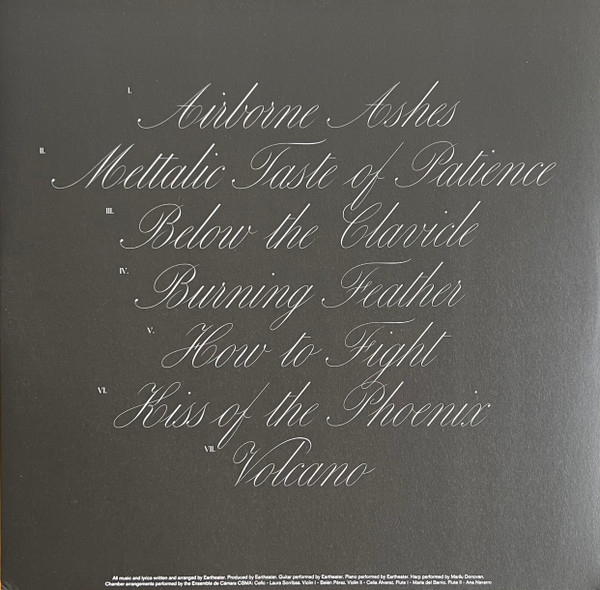 I. Airborne Ashes
II. Mettalic Taste of Patience
III. Below the Clavicle
IV. Burning Feather
V. How to Fight
VI. Kiss of the Phoenix
VII. Volcano
All music and lyrics written and arranged by Eartheater. Produced by Eartheater. Guitar performed by Eartheater. Piano performed by Eartheater. Harp performed by Marilu Donovan.
Chamber arrangements performed by the Ensemble de Cámara CSMA: - Laura Violin I - Belén Pérez, Violin II - Celia Álvarez, Flute I - Maria del Barrio, Flute II - Ana Navarro